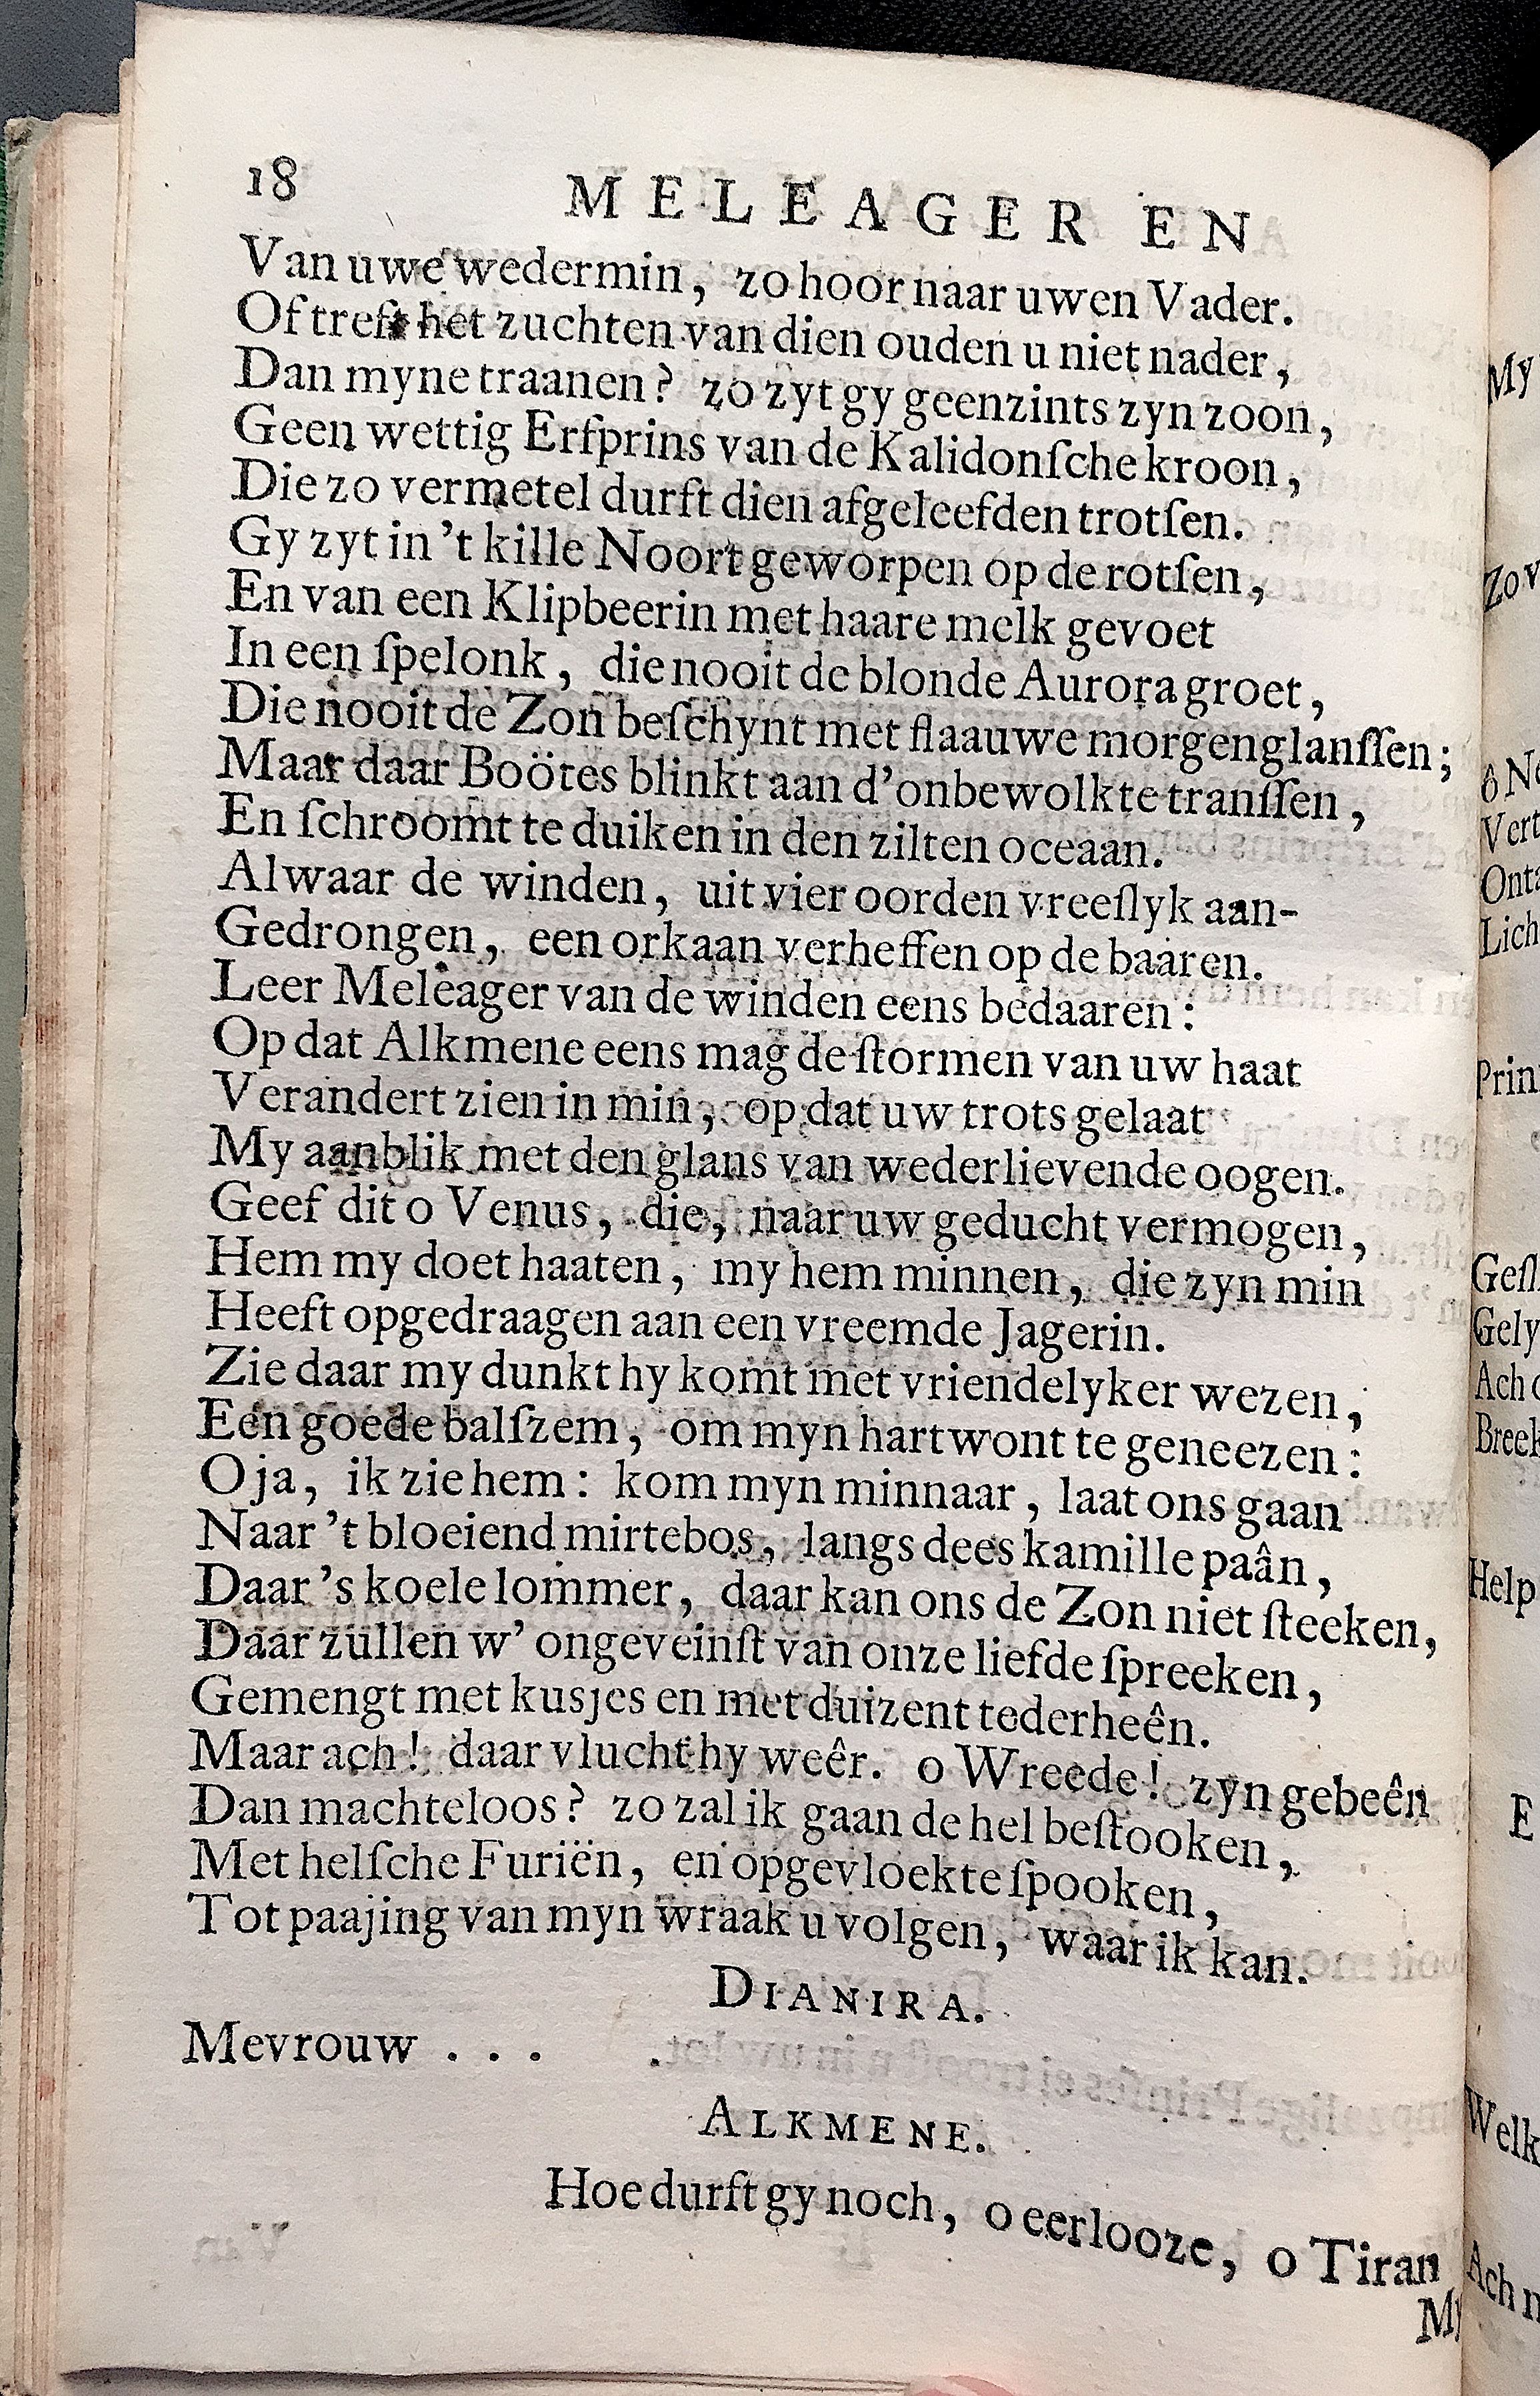 18 MELEAGER EN
Van uwe wedermin, zo hoor naar uwen Vader.
Of treft het zuchten van dien ouden u niet nader,
Dan myne traanen? zo zyt gy geenzints zyn zoon,
Geen wettig Erfprins van de Kalidonſche kroon,
Die zo vermetel durft dien afgeleefden trotſen.
Gy zyt in 't kille Noort geworpen op de rotſen,
En van een Klipbeerin met haare melk gevoet
In een ſpelonk, die nooit de blonde Aurora groet,
Die nooit de Zon beſchynt met flaauwe morgenglanſſen;
Maar daar Boötes blinkt aan d'onbewolkte tranſſen,
En ſchroomt te duiken in den zilten oceaan.
Alwaar de winden, uit vier oorden vreeſlyk aan-
Gedrongen, een orkaan verheffen op de baaren.
Leer Meleager van de winden eens bedaaren:
Op dat Alkmene eens mag de ſtormen van uw haat
Verandert zien in min, op dat uw trots gelaat
My aanblik met den glans van wederlievende oogen.
Geef dit o Venus, die, naar uw geducht vermogen,
Hem my doet haaten, my hem minnen, die zyn min
Heeft opgedraagen aan een vreemde Jagerin.
Zie daar my dunkt hy komt met vriendelyker wezen,
Een goede balſzem, om myn hartwont te geneezen:
O ja, ik zie hem: kom myn minnaar, laat ons gaan
Naar 't bloeiend mirtebos, langs dees kamille paân,
Daar 's koele lommer, daar kan ons de Zon niet ſteeken,
Daar zullen w' ongeveinſt van onze liefde ſpreeken,
Gemengt met kusjes en met duizent tederheên.
Maar ach! daar vlucht hy weêr. o Wreede! zyn gebeên
Dan machteloos? zo zal ik gaan de hel beſtooken,
Met helſche Furiën, en opgevloekte ſpooken,
Tot paajing van myn wraak u volgen, waar ik kan.
DIANIRA.
Mevrouw . . .
ALKMENE.
Hoe durft gy noch, o eerlooze, o Tiran
My
My
Zo
ô
Help